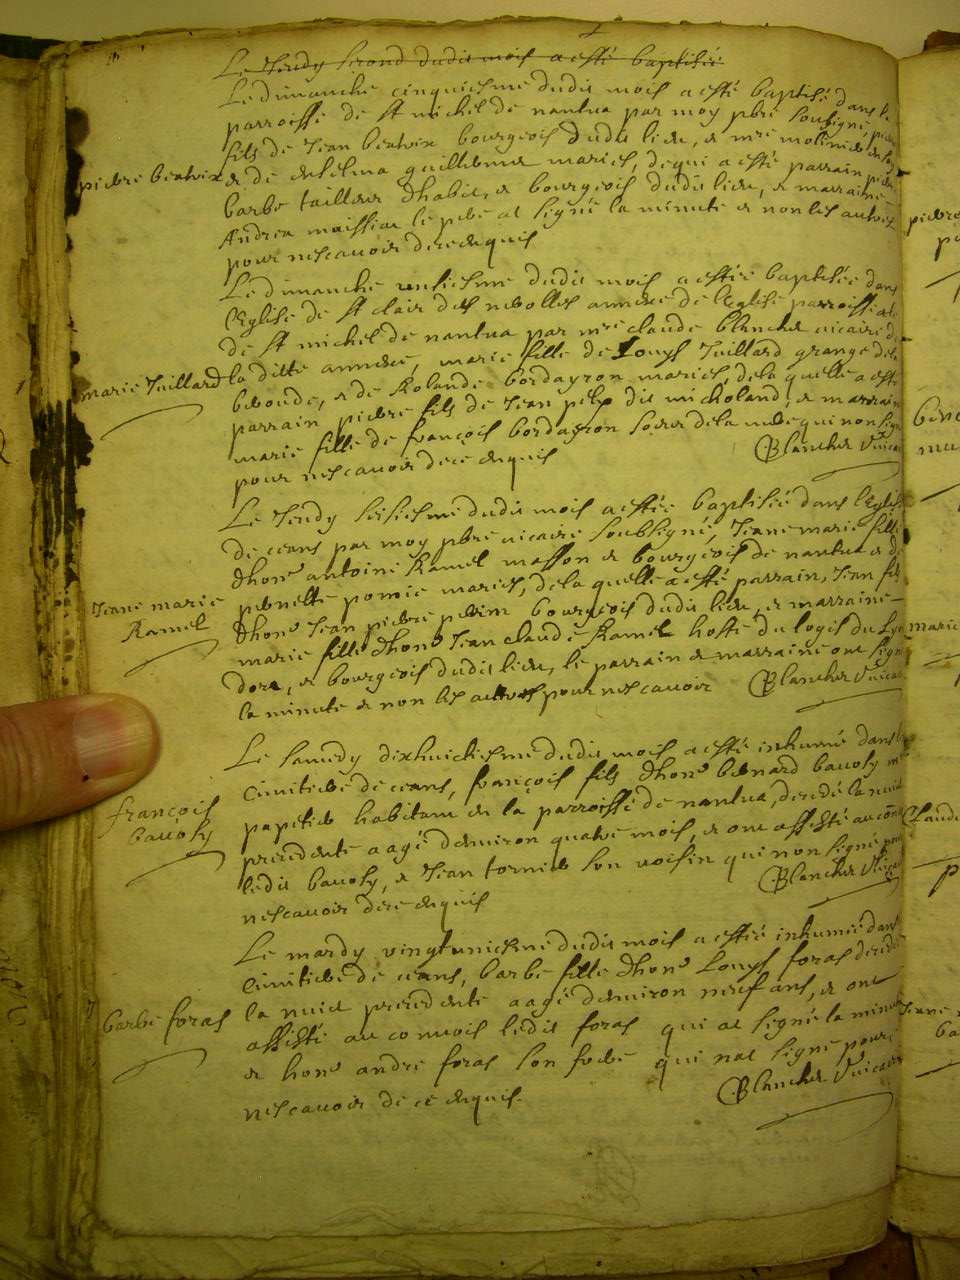 Le Jeudy second dudit mois a esté baptisée
Le dimanche cinquiesme dudit mois a esté baptisé dans la
parroisse de st michel de nantua par moy pbre soubsigné, pierre
fils de Jean beatrix bourgeois dudit lieu, et
pierre beatrix
et de guillerme mariés, de qui a esté parrain pierre
barbe tailleur dhabit, et bourgeois dudit lieu, et marraine
Andrea moissiac le pere at signé la minute et non les autres
pour nescavoir de ce enquis
Le dimanche dudit mois a estée baptisée dans
l'Eglise de st clair des nerolles annexe de l'Eglise parroissiale
de st michel de nantua par mre claude blanchet vicaire de
marie Juillard
la ditte annexe, marie fille de Louys Juillard granger de la
et de Rolande bordayron mariés, de la quelle a esté
parrain pierre fils de Jean dit et marraine
marie fille de françois bordayron soeur de la mere qui non signé
pour nescavoir de ce enquis
Blanchet Vicaire
Le Jeudy seiziesme dudit mois a estée baptisée dans l'Eglise
de ceans par moy pbre vicaire soubsigné, Jeanne marie fille
dhone antoine Ramel masson et bourgeois de nantua et de
Jeane marie
Ramel
pernette mariés, de la quelle a esté parrain, Jean fils
dhone Jean pierre bourgeois dudit lieu, et marraine
marie fille dhone Jean claude Ramel hoste du logis du Lyon
dore, et bourgeois dudit lieu, le parrain et marraine ont signé
la minute et non les autres pour nescavoir
Blanchet Vicaire
Le samedy dixhuictiesme dudit mois a esté inhumé dans le
cimitiere de ceans, françois fils dhone bernard bavosy
françois
bavosy
papetier habitant en la parroisse de nantua, decedé la nuict
precedente aagé denviron quatre mois, et ont assisté au convois
ledit bavosy, et Jean tornier son voesin qui non signé pour
nescavoir de ce enquis
Blanchet Vicaire
Le mardy vingtuniesme dudit mois a estée inhumée dans
cimitiere de ceans, barbe fille dhone Louys foras decedée
barbe foras
la nuict precedente aagé denviron neuf ans, et ont
assisté au convois ledit foras qui at signé la minute
et hone andré foras son frere qui nat signé pour
nescavoir de ce enquis.
Blanchet Vicaire